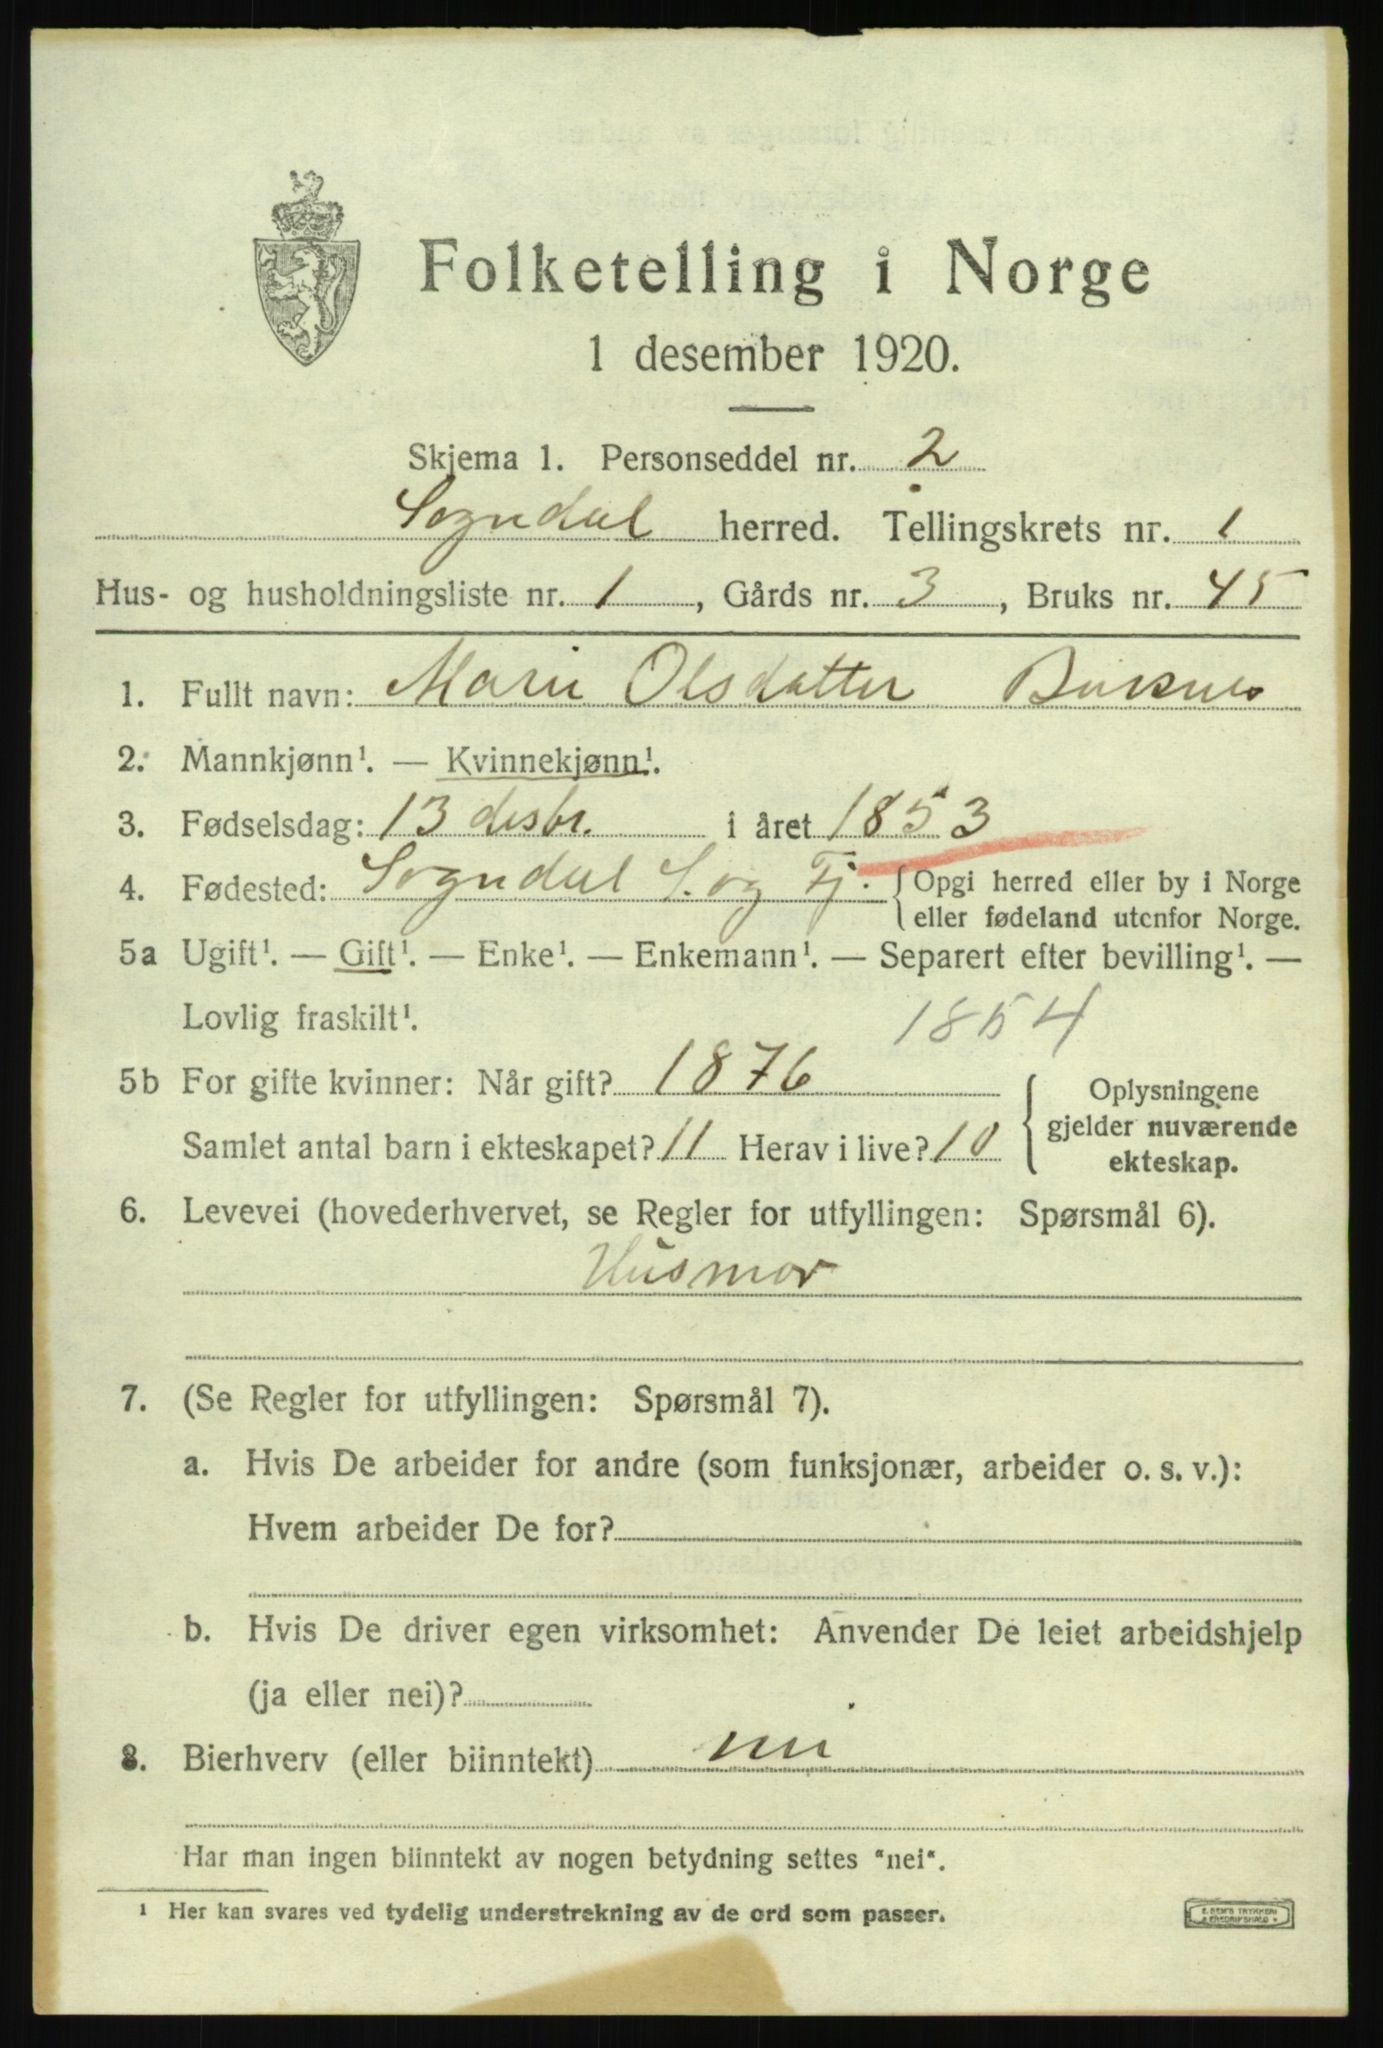 Folketelling i Norge
1 desember 1920.
Skjema 1. Personseddel nr. 2
Sogndal herred. Tellingskrets nr. 1
Hus- og husholdningsliste nr. 1, Gårds nr. 3, Bruks nr. 45
1. Fullt navn: Marie Olsdatter
2. Mannkjønn¹. — Kvinnekjønn¹.
3. Fødselsdag: 13 desbr. i året 1853
4. Fødested: Sogndal S. og Fj. {Opgi herred eller by i Norge
eller fødeland utenfor Norge.
5a Ugift¹. — Gift¹. — Enke¹. — Enkemann¹. — Separert efter bevilling¹. —
Lovlig fraskilt¹.
1854
5b For gifte kvinner: Når gift? 1876
Samlet antal barn i ekteskapet? 11 Herav i live? 10
Oplysningene
gjelder nuværende
ekteskap.
6. Levevei (hovederhvervet, se Regler for utfyllingen: Spørsmål 6).
Husmor
7. (Se Regler for utfyllingen: Spørsmål 7).
a. Hvis De arbeider for andre (som funksjonær, arbeider o. s. v.):
Hvem arbeider De for?
b. Hvis De driver egen virksomhet: Anvender De leiet arbeidshjelp
(ja eller nei)?
8. Bierhverv (eller biinntekt) nei
Har man ingen biinntekt av nogen betydning settes "nei".
¹ Her kan svares ved tydelig understrekning av de ord som passer.